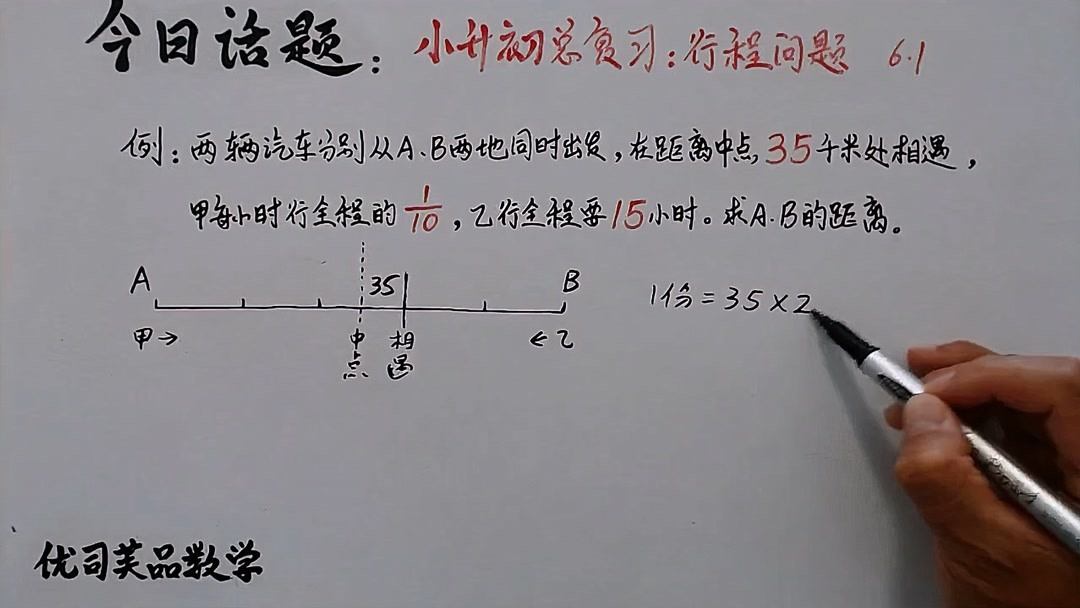 今日话题：小升初总复习：行程问题 6.1
例：两辆汽车分别从A、B两地同时出发，在距离中点35千米处相遇，
甲每小时行全程的1/10，乙行全程要15小时。求A.B的距离。
A 35 B
1份=35×2
甲→ 中点 相遇 ←乙
优司芙品数学